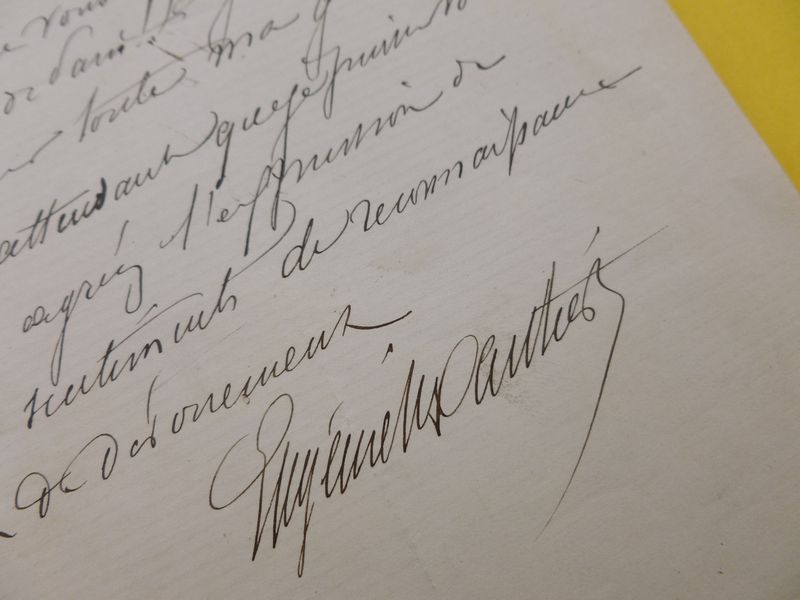 vous
de Paris
toute ma
attendant que je puisse
agréez l'expression de
sentiments de reconnaissance
de dévouement
Eugénie Dauthés